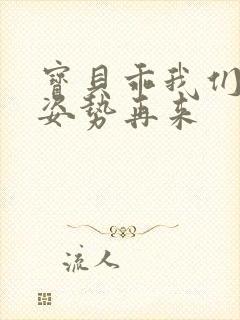 寶貝乖我们
姿势再来
流人